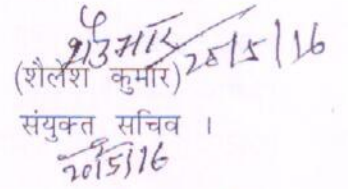 20/5/16
(शैलेश कुमार)
संयुक्त सचिव ।
20/5/16